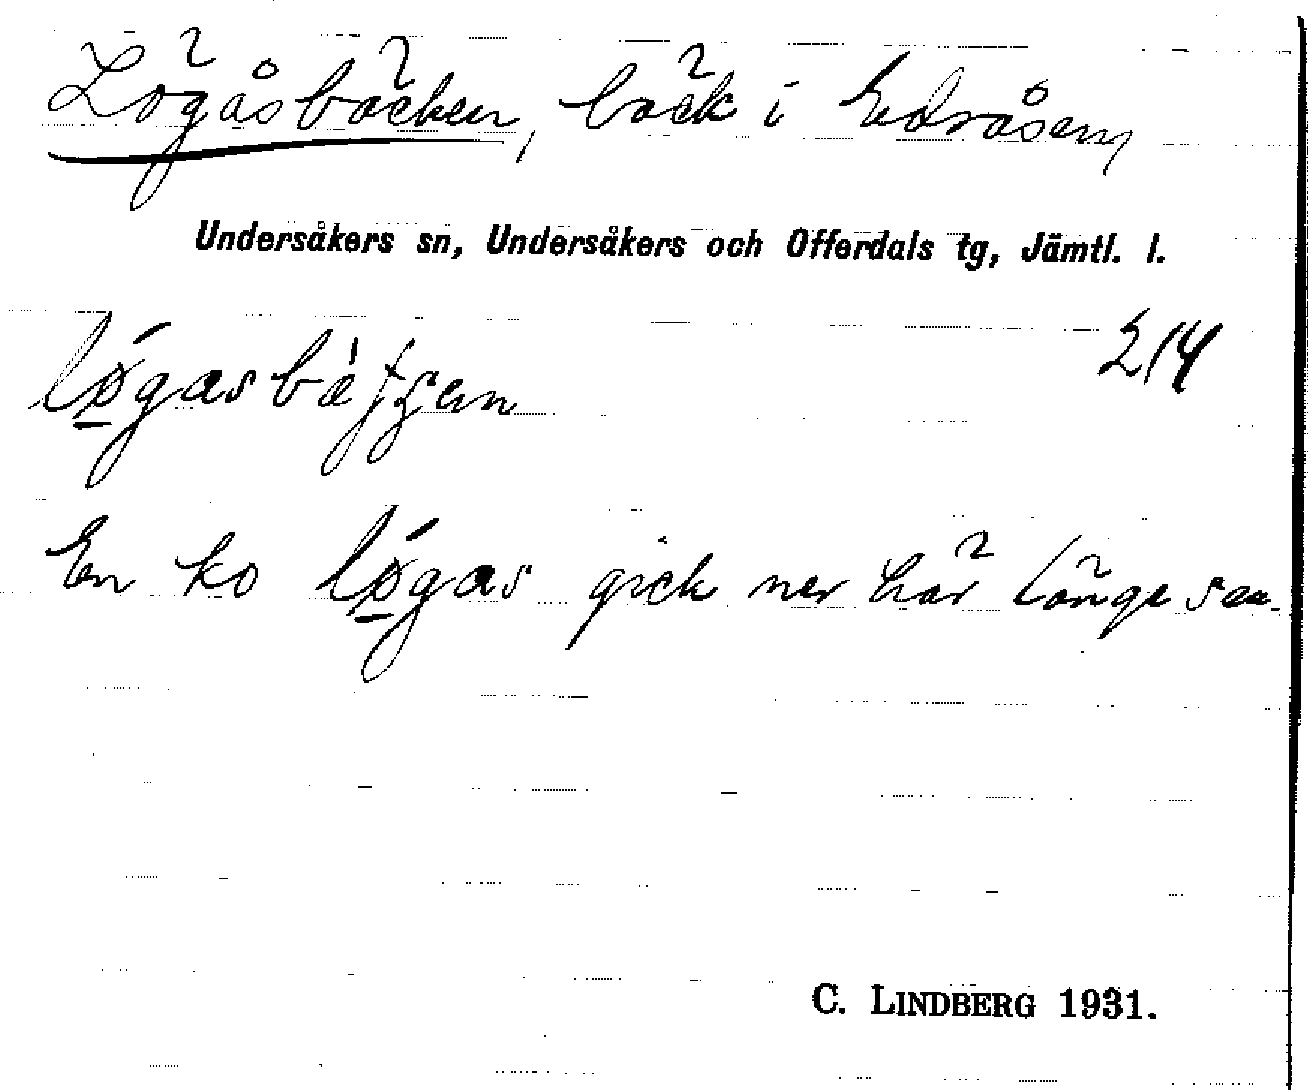 Lögåsbäcken, bäck i Edsåsen,
Undersåkers sn, Undersåkers och Offerdals tg, Jämtl. l.
2/4
En ko gick ner här länge sen.
C. LINDBERG 1931.